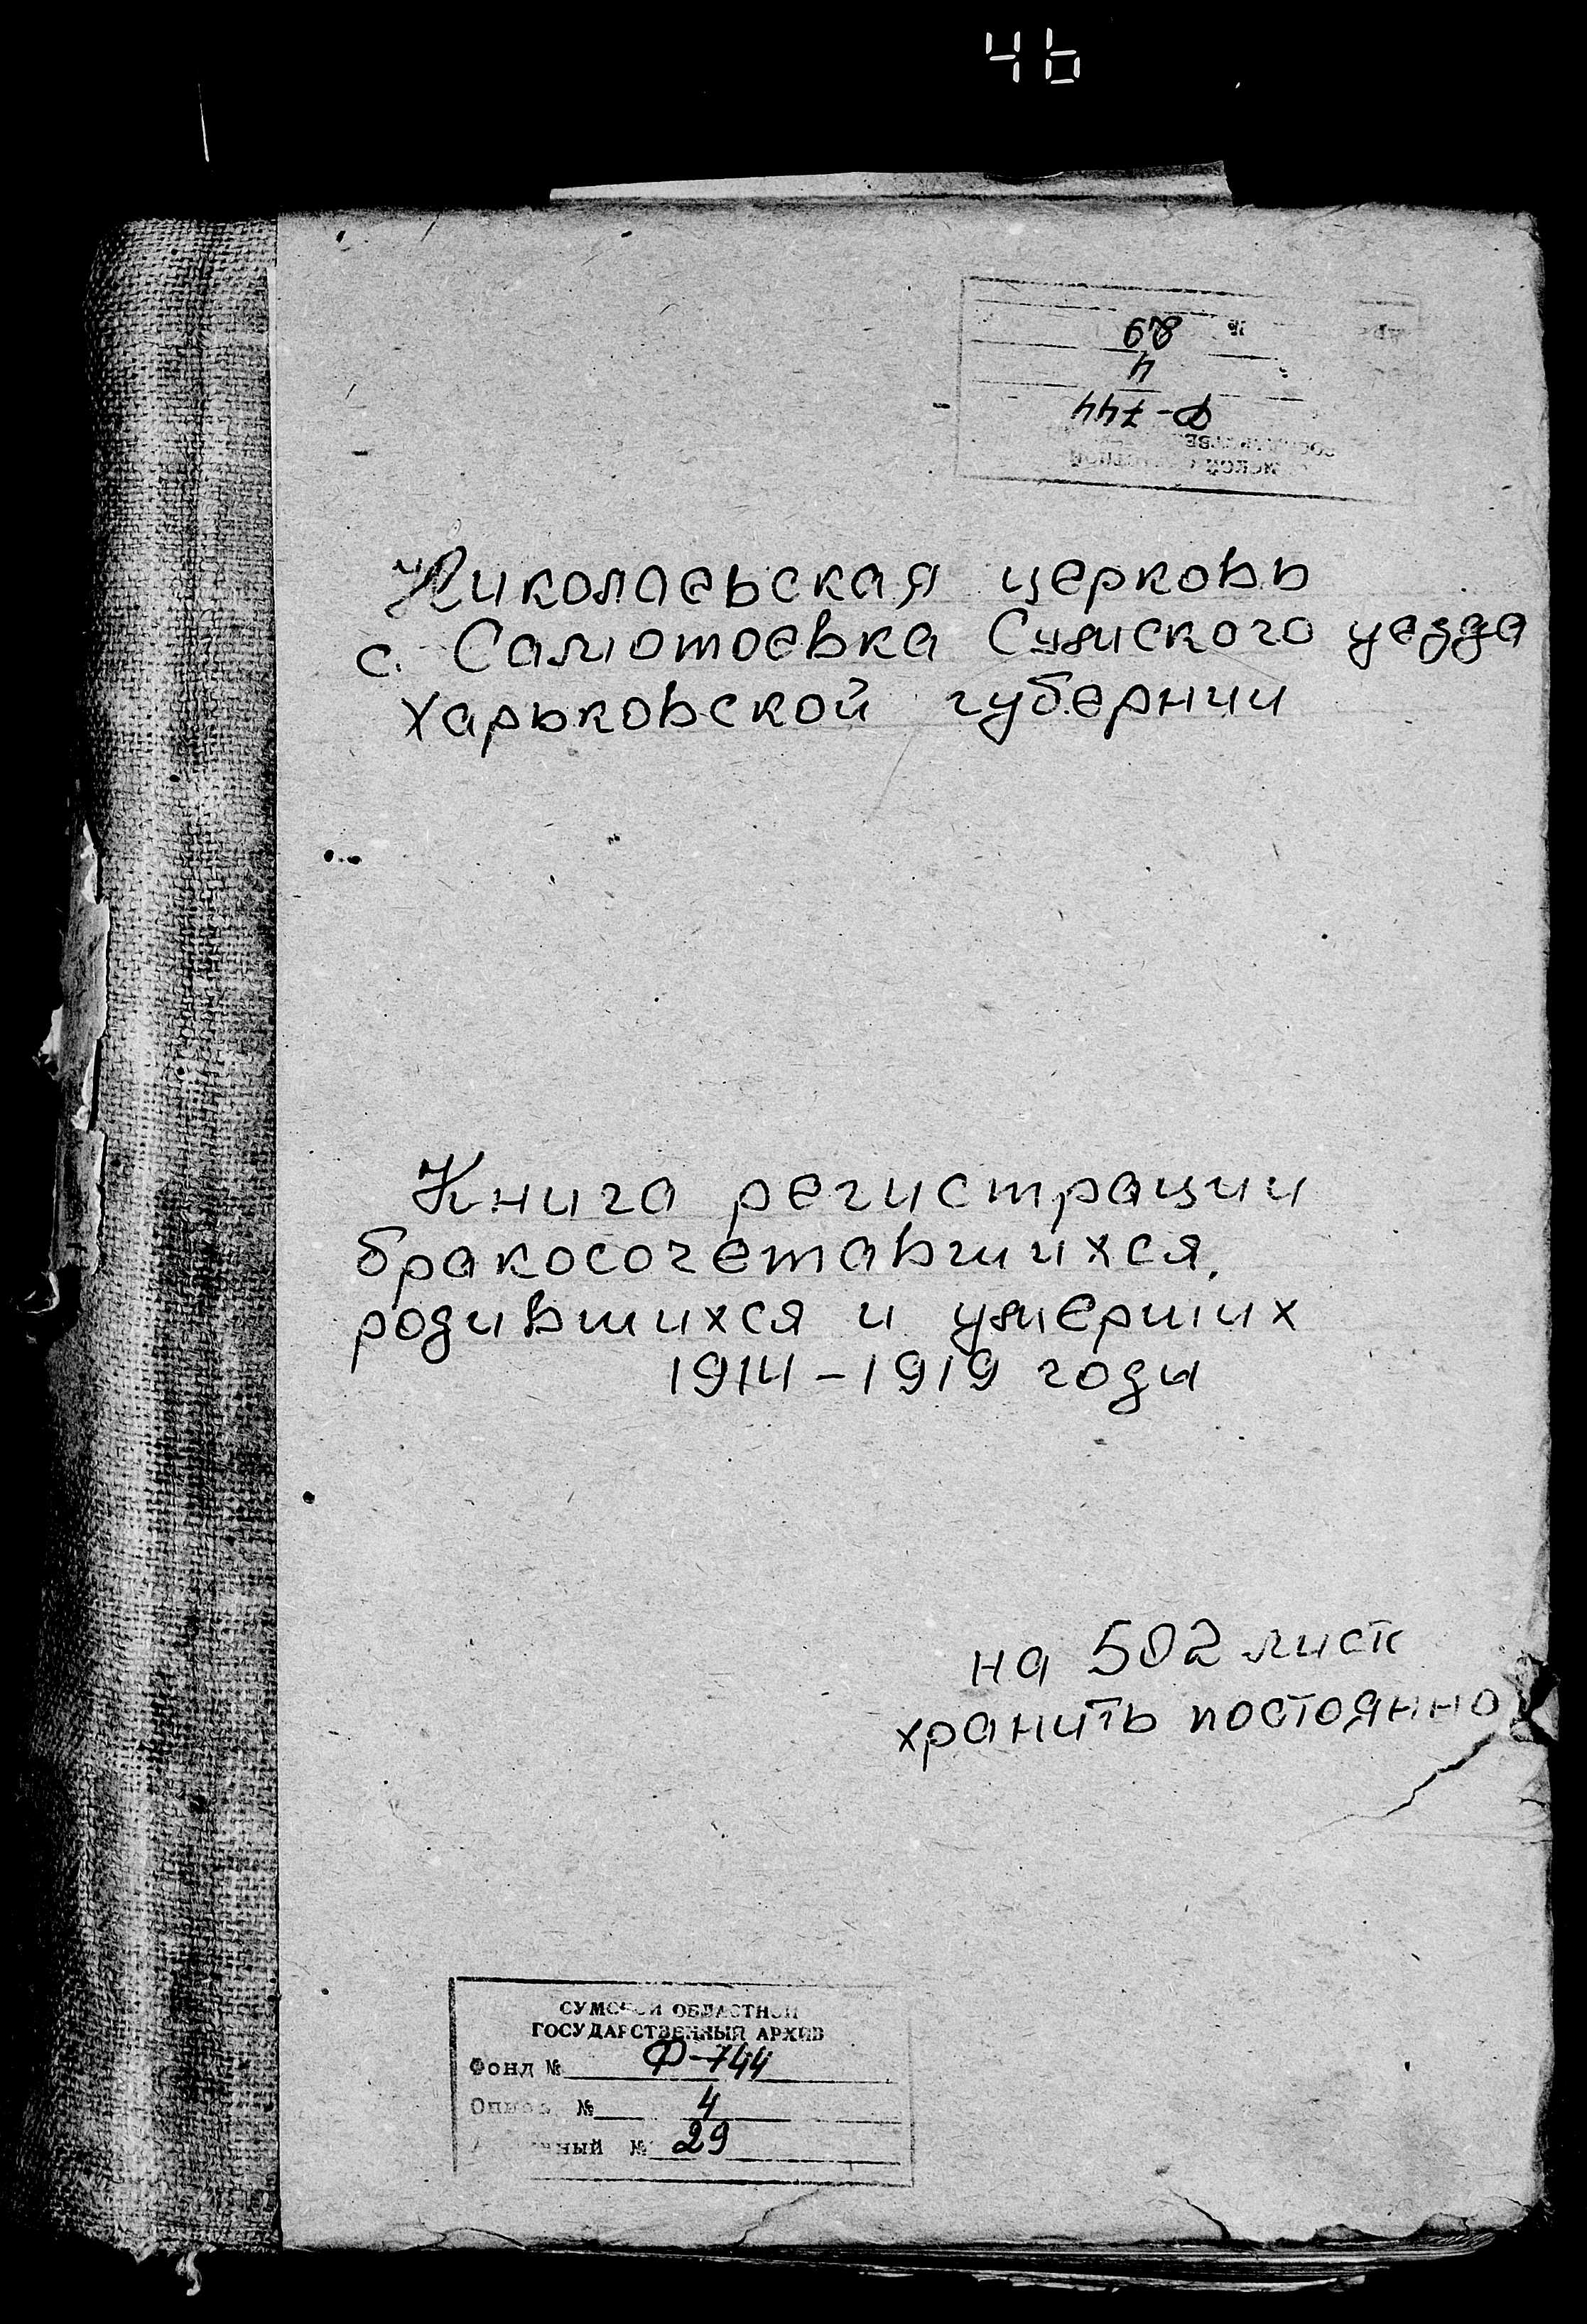 46
№ 29
4
Ф-744
Николаевская церковь
с. Самотоевка Сумского уезда
Харьковской губернии
Книга регистрации
бракосочетавшихся,
родившихся и умерших
1914-1919 годы
на 502 листк
хранить постоянно
СУМСКОЙ ОБЛАСТНОЙ
ГОСУДАРСТВЕННЫЙ АРХИВ
Фонд № Ф-744
Опись № 4
№ 29